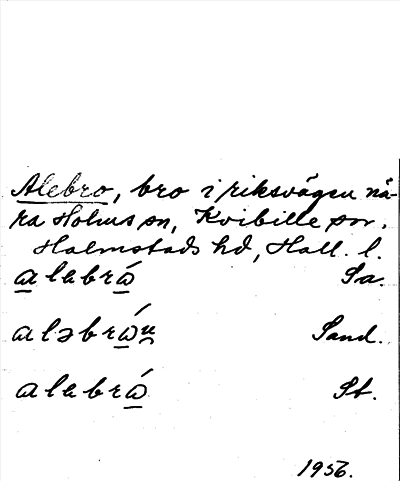 Alebro, bro i riksvägen nä-
ra Holms sn, Kvibille sn,
Halmstads hd, Hall. l.
alabrå Sa.
aləbrån Sand.
alabrå St.
1956.